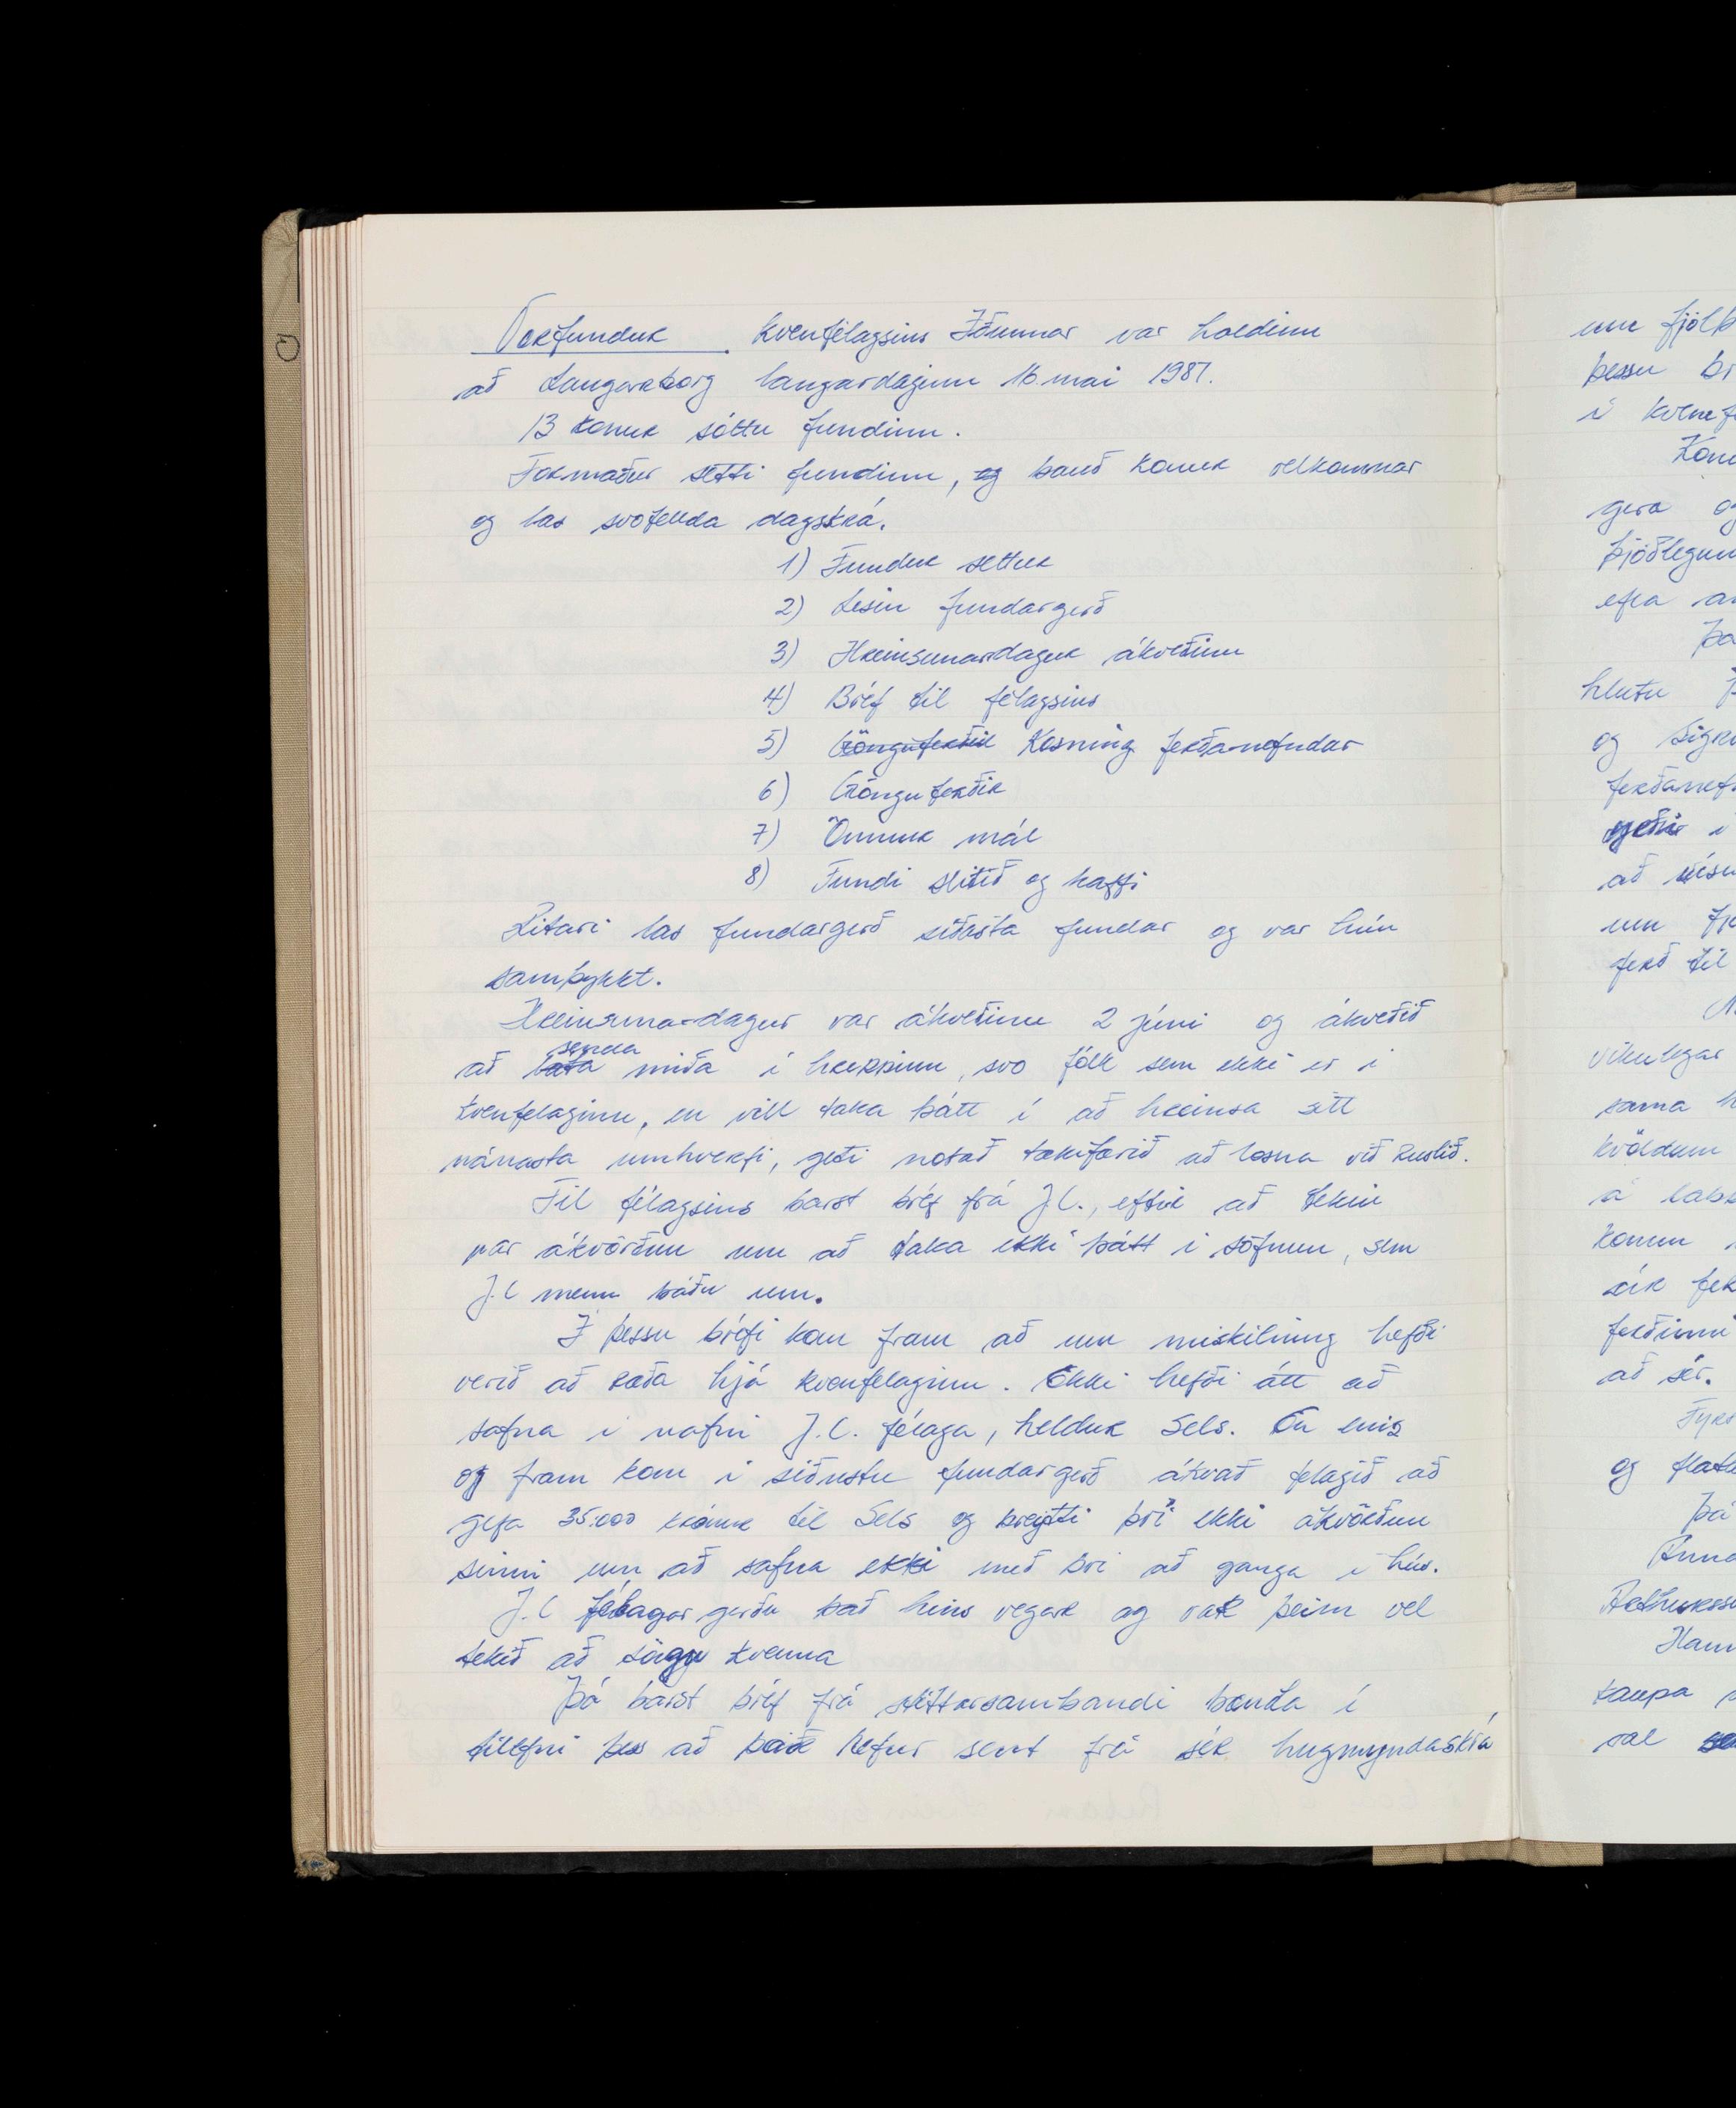 Vorfundur kvenfélagsins Iðunnar var haldinn
að Laugarborg laugardaginn 16. mai 1987.
13 konur sóttu fundinn.
Formaður setti fundinn, og bauð konur velkomnar
og las svofellda dagskrá.
1) Fundur settur
2) Lesin fundargerð
3) Hreinsunardagur ákveðinn
4) Bréf til félagsins
5) Gönguferðir Kosning ferðanefndar
6) Gönguferðir
7) Önnur mál
8) Fundi slitið og kaffi
Ritari las fundargerð síðasta fundar og var hún
samþykkt.
Hreinsunardagur var ákveðinn 2 júni og ákveðið
senda
að láta miða í hreppinn, svo fólk sem ekki er i
kvenfelaginu, en vill taka þátt í að hreinsa sitt
nánasta umhverfi, geti notað tækifærið að losna við ruslið.
Til félagsins barst bréf frá J.C., eftir að tekin
var ákvörðun um að taka ekki þátt i söfnun, sem
J.C menn báðu um.
Í þessu bréfi kom fram að um miskilning hefði
verið að ræða hjá kvenfelaginu. Ekki hefði átt að
safna i nafni J.C. félaga, heldur Sels. En eins
og fram kom i síðustu fundargerð ákvað felagið að
gefa 35.000 krónur til Sels og breytti þvi ekki ákvörðun
sinni um að safna ekki með þvi að ganga i hús.
J.C félagar gerðu það hins vegar og var þeim vel
tekið að sögn kvenna
Þá barst bréf frá stéttarsambandi bænda í
tilefni þess að það hefur sent frá sér hugmyndaskrá
um
þessu
i
gera
þjóðlegum
efla
hlutu
og
að
um
ferð til
vikulegar
sama
kvöldum
á
komu
ferðinni
að sér.
og
Þá
Anna
kaupa
sal